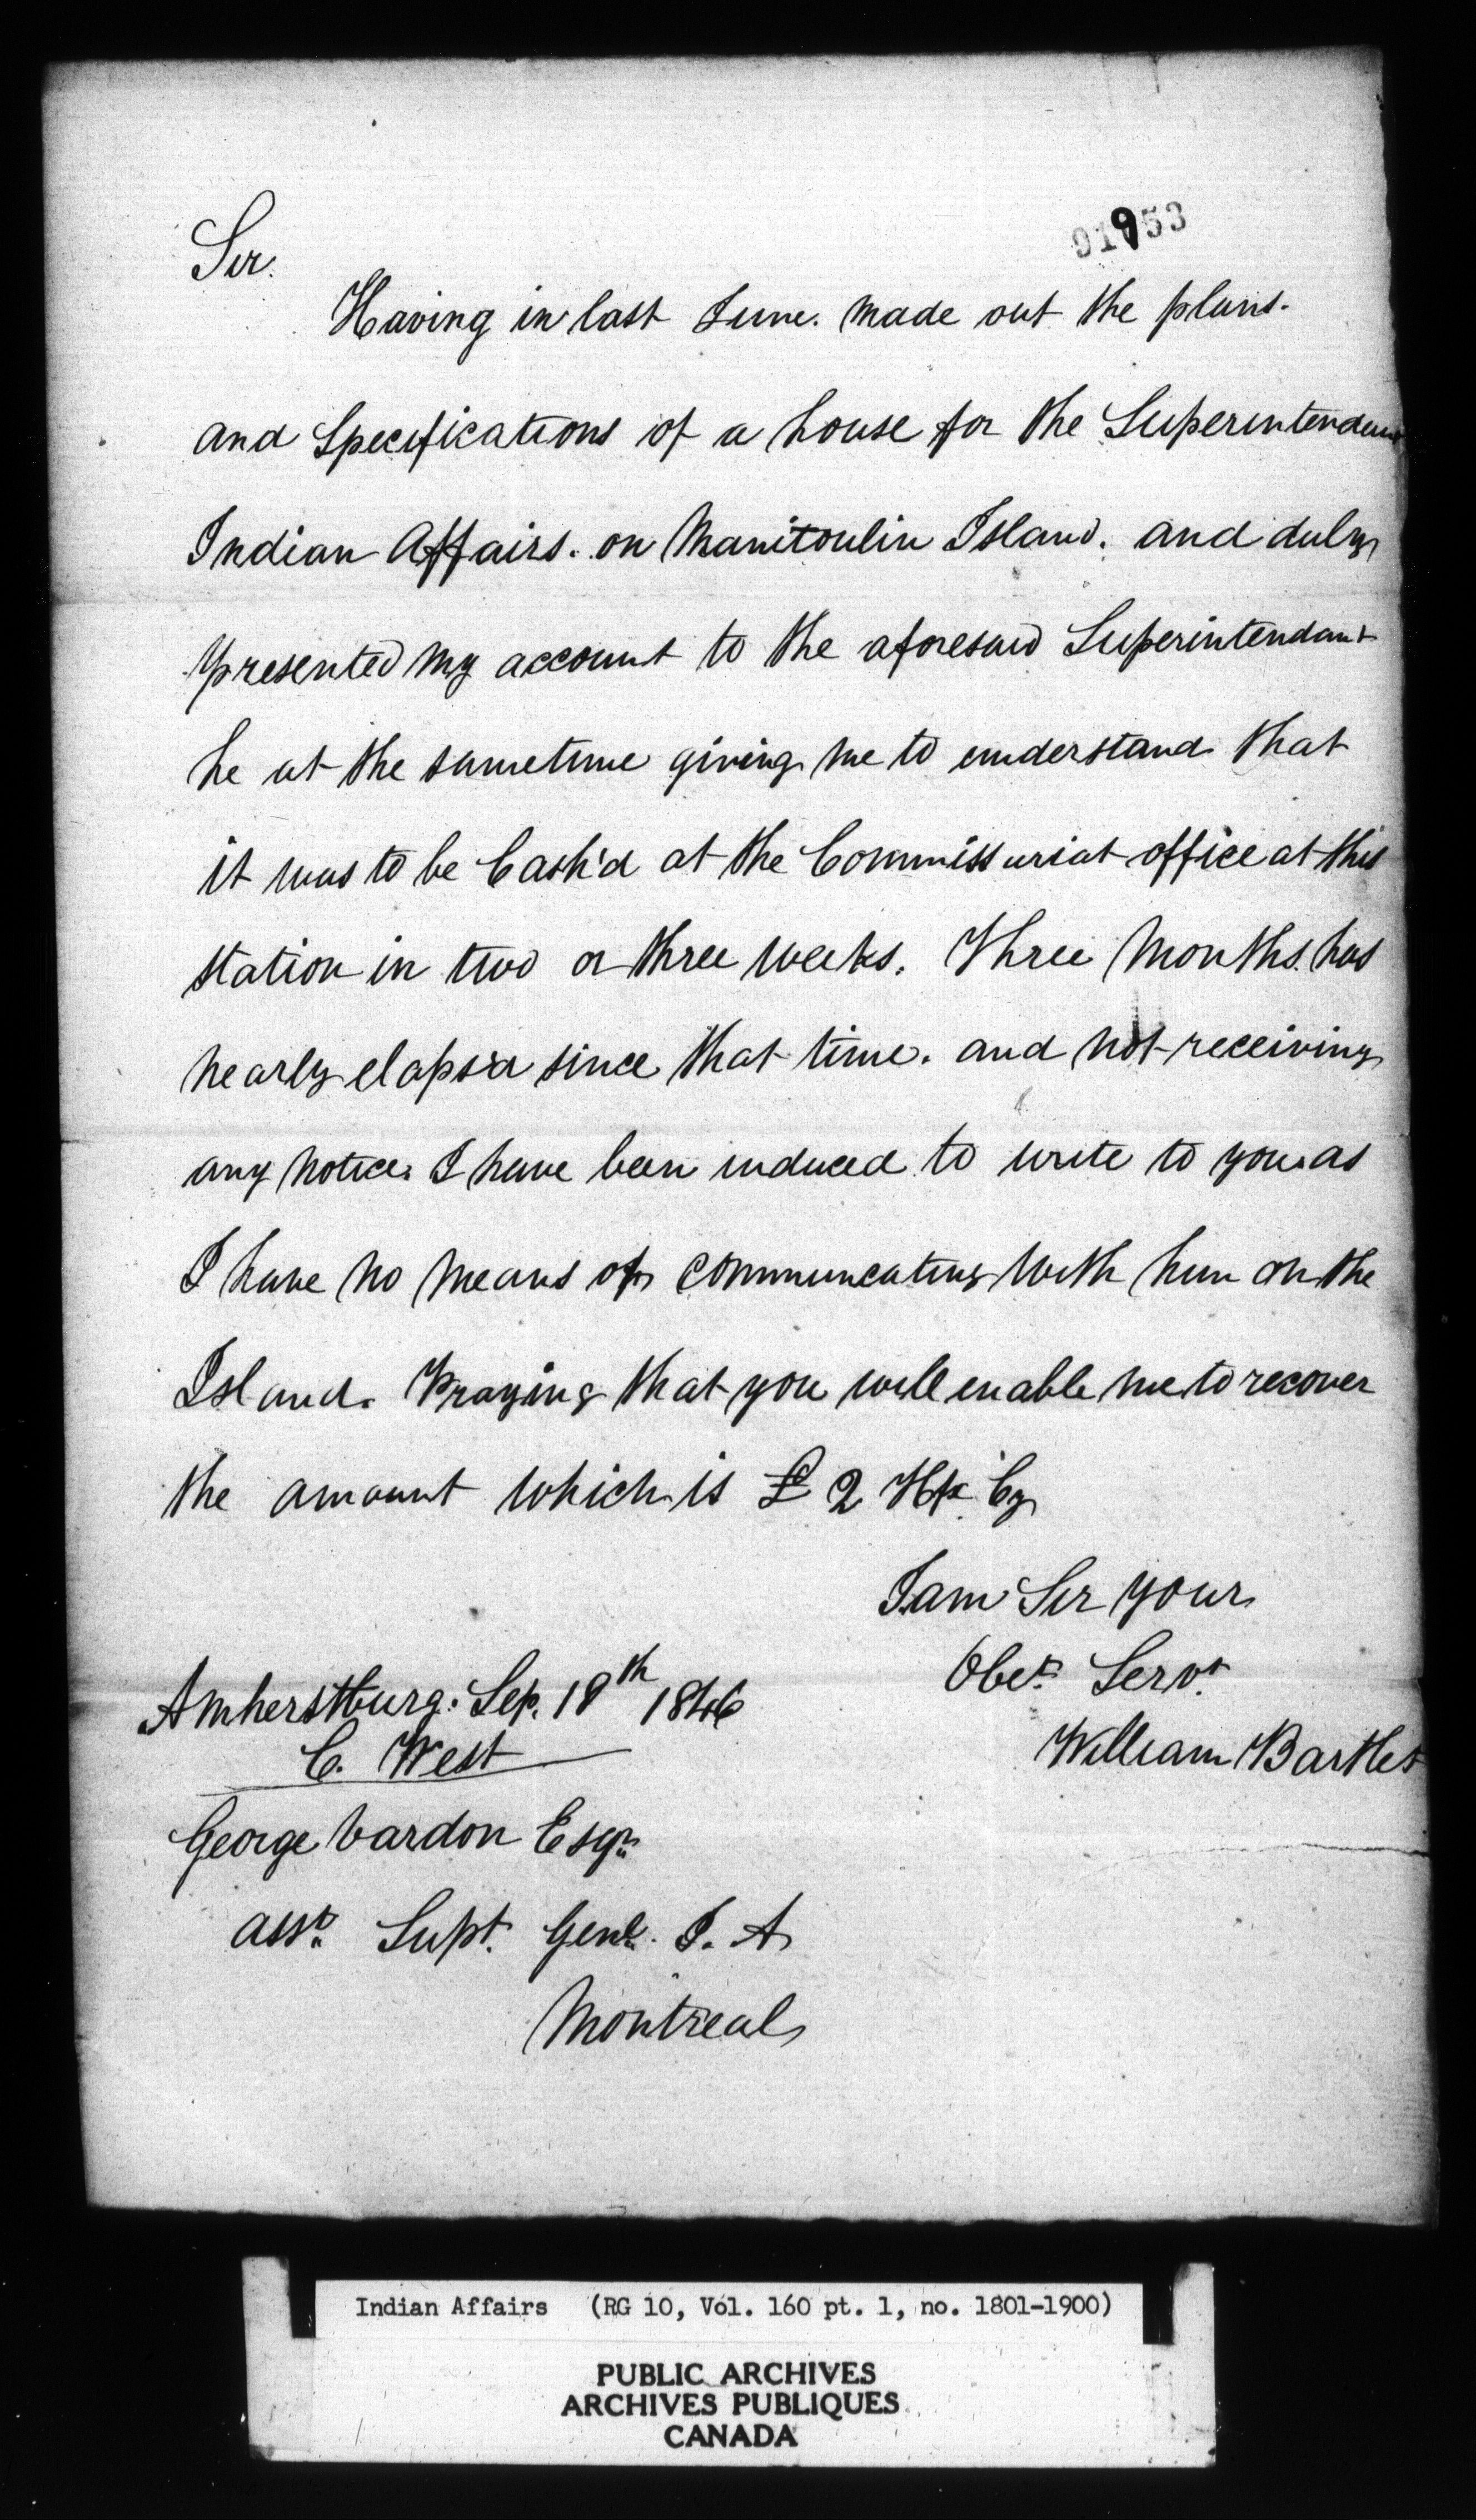 91953
Sir.
Having in last June. made out the plans.
and Specifications of a house for the Superintendant
Indian Affairs. on Manitoulin Island. and duly
presented my account to the aforesaid Superintendant
he at the sametime giving me to understand that
it was to be Cash'd at the Commissariat office at this
station in two or three weeks. Three Months. has
nearly elaps'd since that time. and not receiving
any notice. I have been induced to write to you. as
I have no means of communcating with him on the
Island. Praying that you will enable me to recover
the amount which is £ 2 Hx Cy
I am Sir your
Obet. Servt.
Amherstburg. Sep. 18th 1846
William Bartlet
C. West
George Vardon Esqr.
asst. Supt. Genl. I. A
Montreal
Indian Affairs (RG 10, Vol. 160 pt. 1, no. 1801-1900)
PUBLIC ARCHIVES
ARCHIVES PUBLIQUES
CANADA